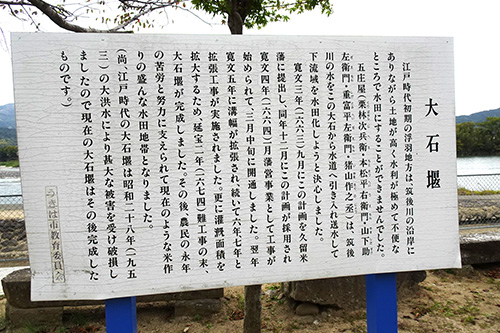 大石堰
江戸時代初期の浮羽地方は、筑後川の沿岸に
ありながら土地が高く水利が極めて不便な
ところで水田にすることができませんでした。
五庄屋(栗林次兵衛・本松平右衛門・山下助
左衛門・重富平左衛門・猪山作之丞)は、筑後
川の水をこの大石から水道へ引き入れ送水して
下流域を水田化しようと決心しました。
寛文三年(一六六三)九月にこの計画を久留米
藩に提出し、同年十二月にこの計画が採用され
寛文四年(一六六四)藩営事業として工事が
始められて、三月中旬に開通しました。翌年
寛文五年に溝幅が拡張され続いて六年七年と
拡張工事が実施されました。更に灌漑面積を
拡大するため、延宝二年(一六七四)難工事の末、
大石堰が完成しました。その後、農民の永年
の苦労と努力に支えられて現在のような米作
りの盛んな水田地帯となりました。
(尚、江戸時代の大石堰は昭和二十八年(一九五
三)の大洪水により甚大な被害を受け破損し
ましたので現在の大石堰はその後完成した
ものです。)
うきは市教育委員会